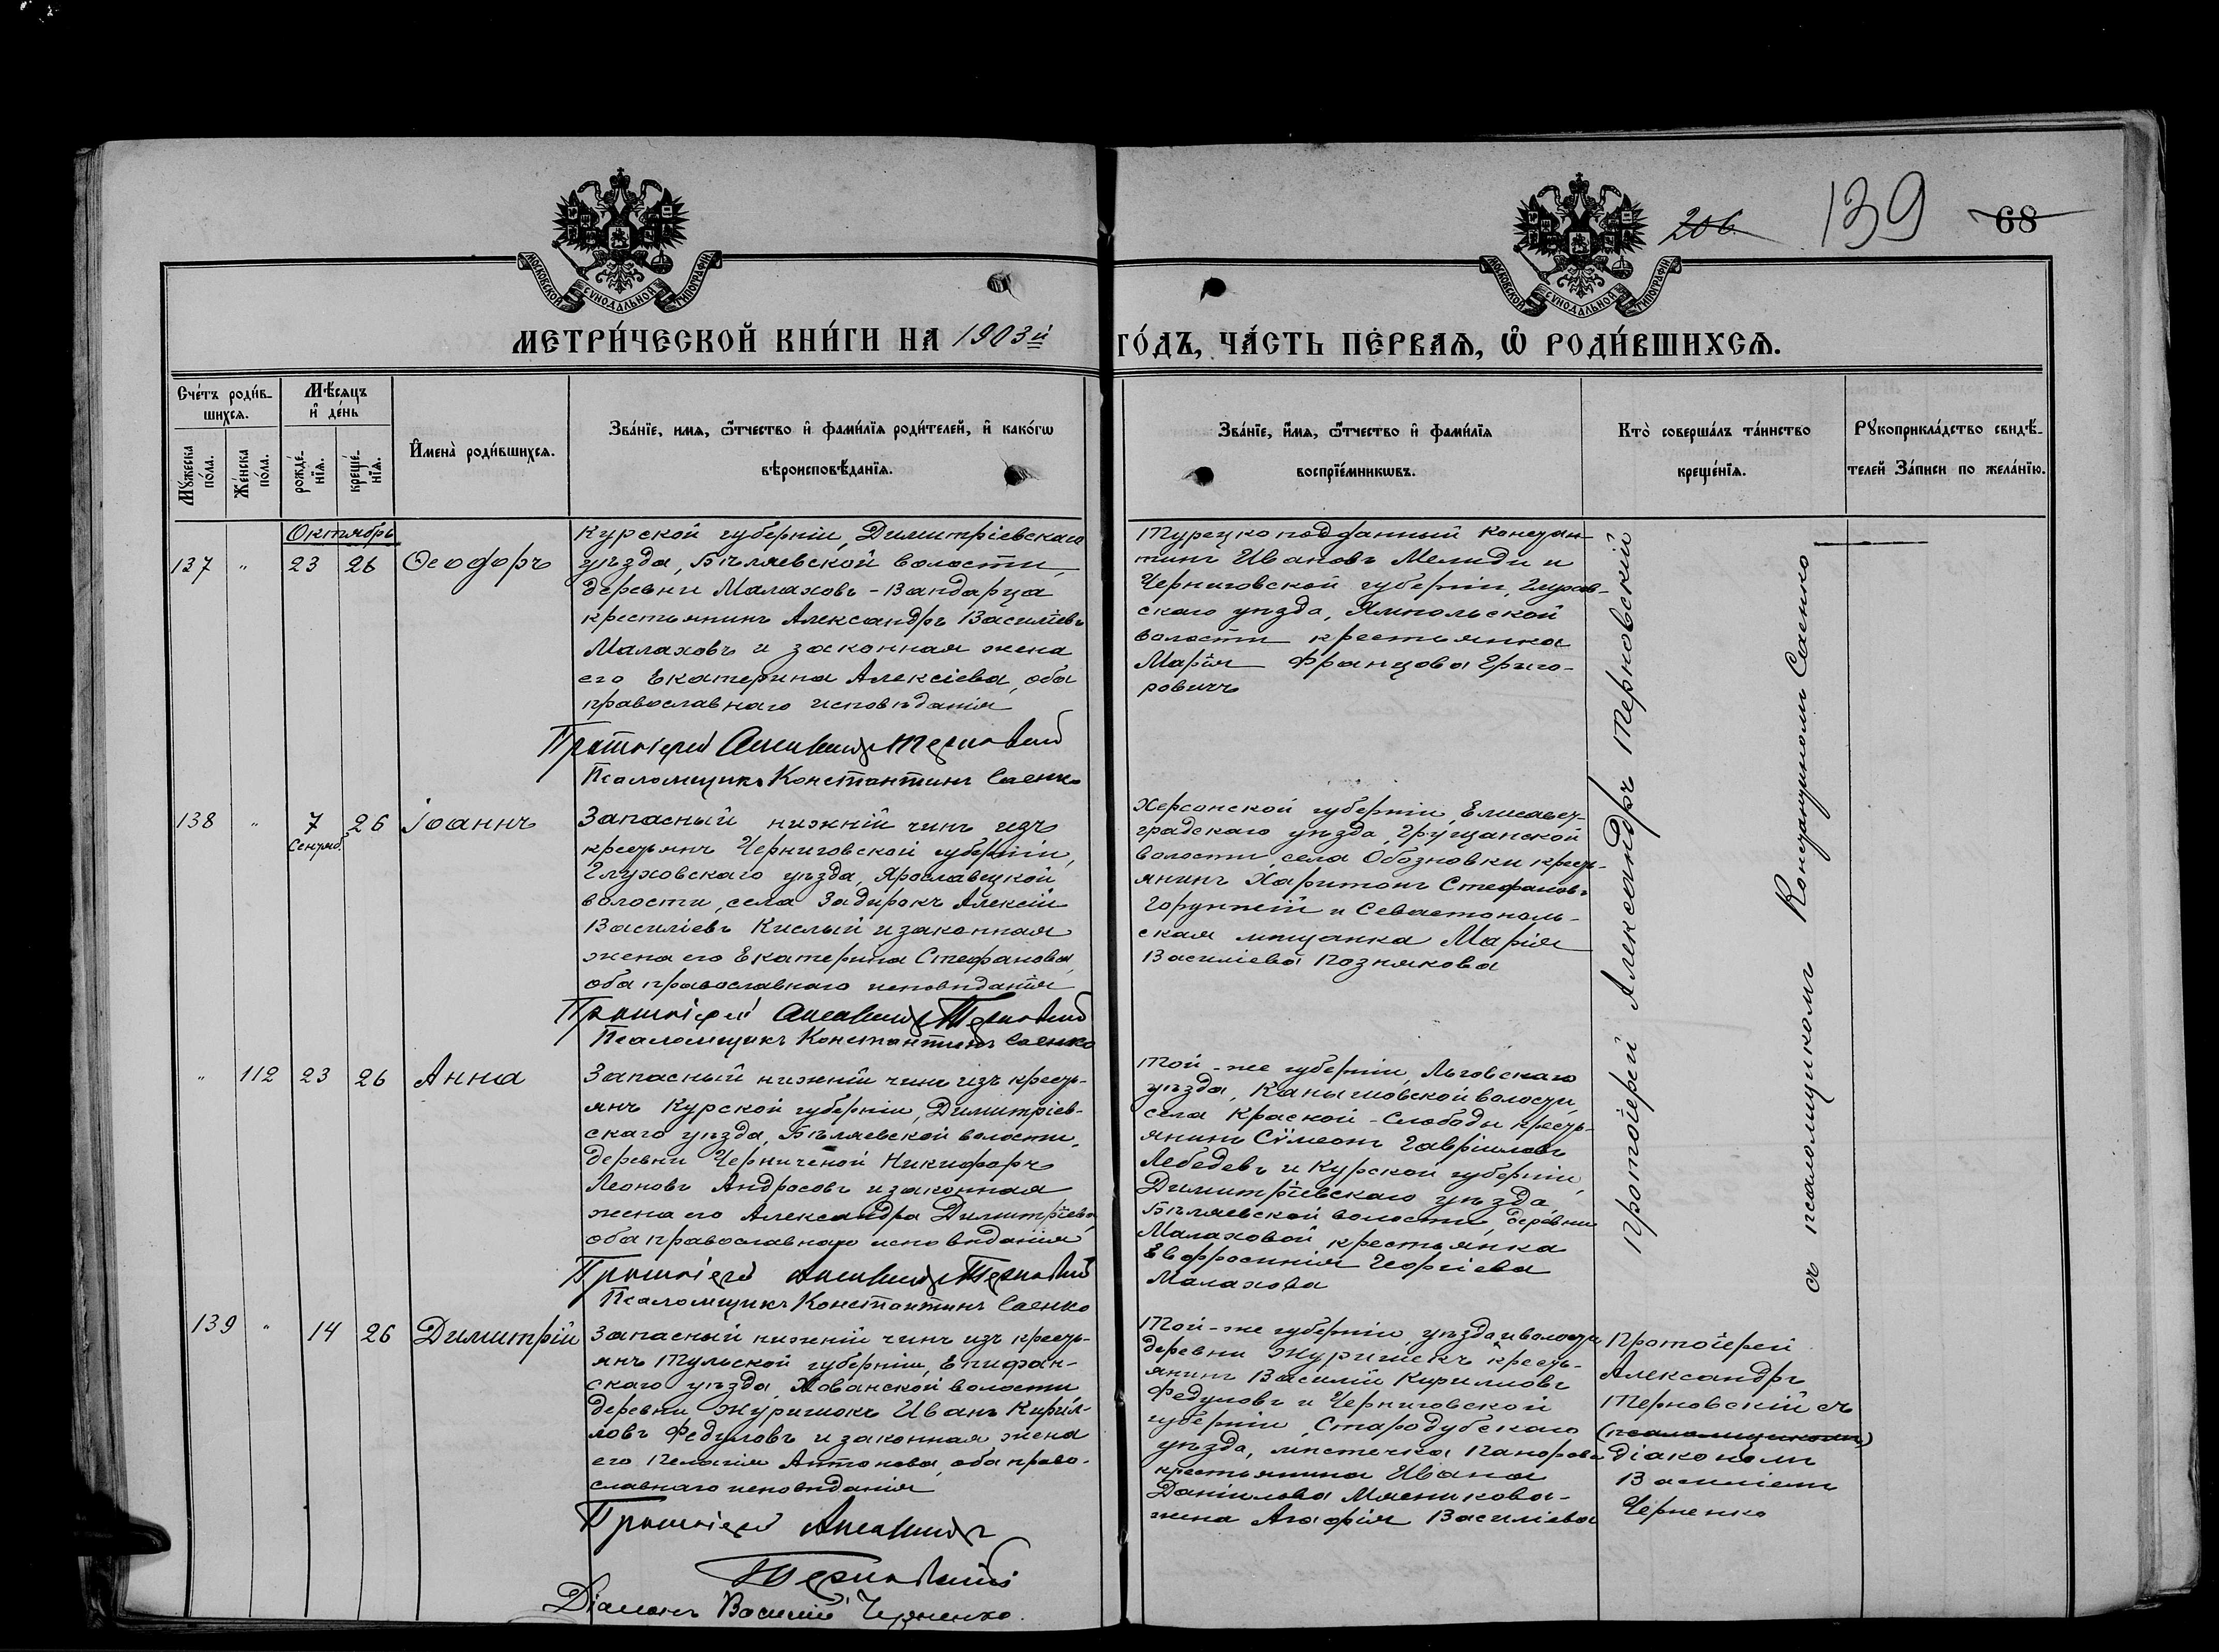 МОСКОВСКОЙ СУНОДАЛЬНОЙ ТИПОГРАФІИ
МОСКОВСКОЙ СУНОДАЛЬНОЙ ТИПОГРАФІИ
206 139 68
МЕТРИ́ЧЕСКОЙ КНИ́ГИ НА 1903й ГО́ДЪ, ЧА́СТЬ ПЕ́РВАѦ, Ѡ҆ РОДИ́ВШИХСѦ.
Сче́тъ роди́в-
шихсѧ.
Мꙋ́жеска по́ла.
Же́нска по́ла.
Мѣ́сѧцъ
и҆ де́нь
рожде́-нїѧ.
креще́-нїѧ.
И҆мена̀ роди́вшихсѧ.
Зва́нїе, имѧ, ѻ҆́тчество и҆ фами́лїѧ роди́телей, и҆ како́гѡ
вѣроисповѣ́данїѧ.
Зва́нїе, и҆́мѧ, ѻ҆́тчество и҆ фами́лїѧ
воспрїе́мникѡвъ.
Кто̀ соверша́лъ та́инство
креще́нїѧ.
Рꙋкоприкла́дство свидѣ́-
телей За́писи по жела́нїю.
Октябрь
137 " 23 26 Ѳеодоръ
Курской губерніи, Димитріевскаго
уѣзда, Бѣляевской волости,
деревни Малаховъ-
крестьянинъ Александръ Василіевъ
Малаховъ и законная жена
его Екатерина Алексіева, оба
православнаго исповѣданія
Протоіерей Александръ Терновскій
Псаломщикъ Константинъ Саенко
Турецкоподданный Констан-
тинъ Ивановъ Мелиди и
Черниговской губерніи, Глухов-
скаго уѣзда, Ямпольской
волости крестьянка
Марія Францова Григо-
ровичъ
Протоіерей Александръ Терновскій
съ псаломщикомъ Константиномъ Саенко
138 " 7 Сентяб. 26 Іоаннъ
Запасный нижній чинъ изъ
крестьянъ Черниговской губерніи,
Глуховскаго уѣзда, Ярославецкой
волости, села Задирокъ Алексій
Василіевъ Кислый и законная
жена его Екатерина Стефанова,
оба православнаго исповѣданія
Протоіерей Александръ Терновскій
Псаломщикъ Константинъ Саенко
Херсонской губерніи, Елисавет-
градскаго уѣзда, Грущанской
волости, села Обозновки кресть-
янинъ Харитонъ Стефановъ
Горунжій и Севастополь-
ская мѣщанка Марія
Василіева Познякова
" 112 23 26 Анна
Запасный нижній чинъ изъ кресть-
янъ Курской губерніи, Димитріев-
скаго уѣзда, Бѣляевской волости,
деревни Черничной Никифоръ
Леоновъ Андросовъ и законная
жена его Александра Димитріева,
оба православнаго исповѣданія
Протоіерей Александръ Терновскій
Псаломщикъ Константинъ Саенко
Той-же губерніи, Льговскаго
уѣзда, волости,
села Краской-Слободы кресть-
янинъ Сѵмеонъ Гавріиловъ
Лебедевъ и Курской губерніи,
Димитріевскаго уѣзда
Бѣляевской волости, деревни
Малаховой крестьянка
Евфросинія Георгіева
Малахова
139 " 14 26 Димитрій
Запасный нижній чинъ изъ кресть-
янъ Тульской губерніи, Епифан-
скаго уѣзда, Хованской волости
деревни Журишокъ Иванъ Кирил-
ловъ Федуловъ и законная жена
его Пелагія Антонова, оба право-
славнаго исповѣданія
Протоіерей Александръ
Терновскій
Діаконъ Василій Черненко.
Той-же губерніи, уѣзда и волости
деревни Журишекъ кресть-
янинъ Василій Кирилловъ
Федуловъ и Черниговской
губерніи, Стародубскаго
уѣзда, мѣстечка
крестьянина Ивана
Даніилова Мясникова-
жена Агафія Василіева
Протоіерей
Александръ
Терновскій съ
(псаломщикомъ)
діакономъ
Василіемъ
Черненко